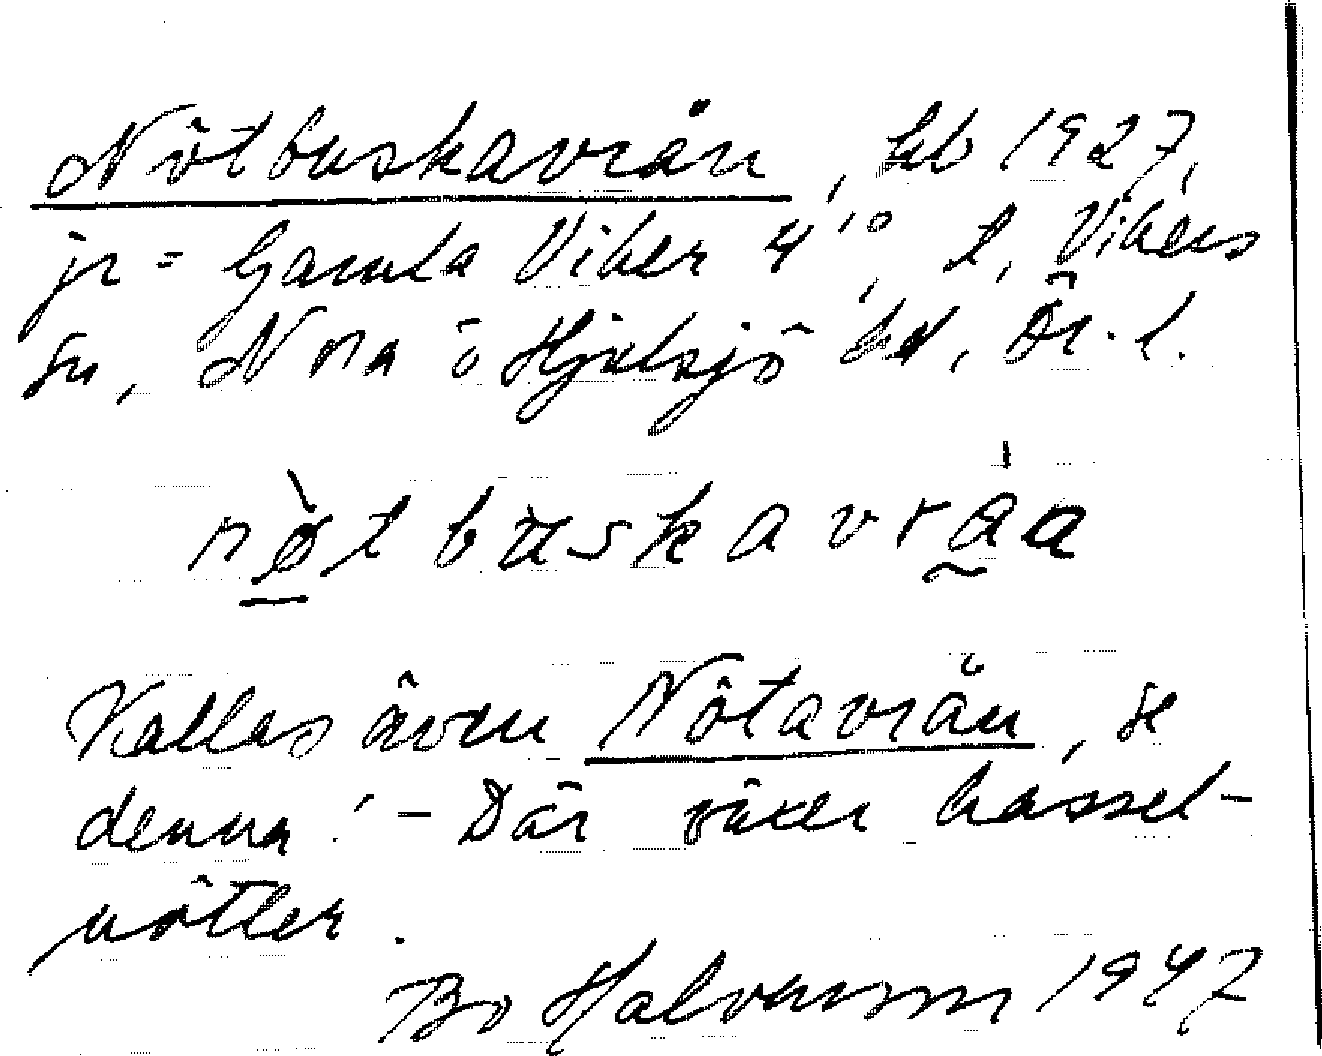 Nötbuskavrån, hb 1927,
jr = Gamla Viker 4¹⁰, t. Vikers
sn, Nora o Hjulsjö bd, Ör. l.
nø̀tbuskavrå̀a
Kallas även Nötavrån, se
denna! - Där växer hassel-
nötter.
Bo Halvarsson 1947